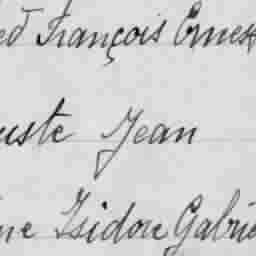 ed François Ernest
uste Jean
ne Isidore Gabrie